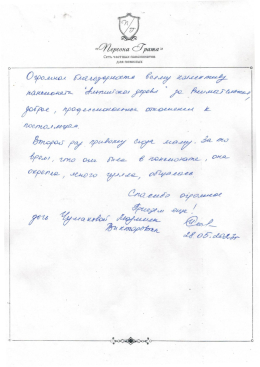 «Персона Грата»
Сеть частных пансионатов
для пожилых
Огромная благодарность всему коллективу
пансионата "Английская деревня" за внимательное,
доброе, профессиональное отношение к
постояльцам.
Второй раз привожу сюда маму. За то
время, что она была в пансионате, она
окрепла, много гуляла, общалась
Спасибо огромное
Приедем еще!
дочь Людмила
Викторовна
28.05.